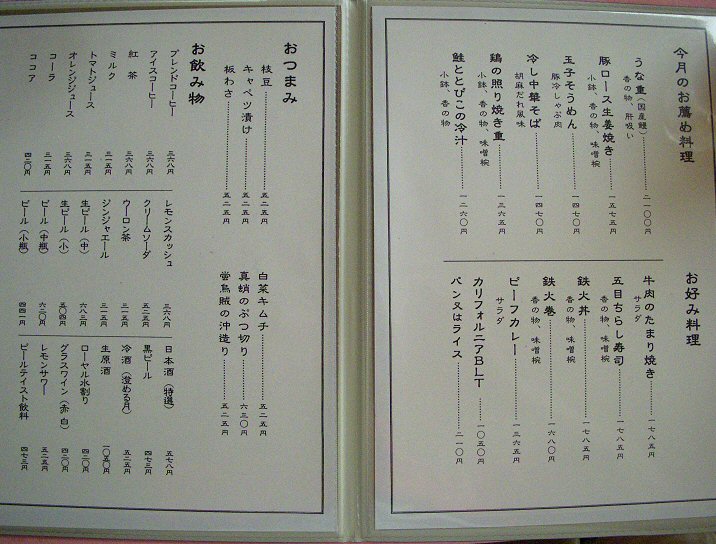 今月のお薦め料理
うな重(国産鰻)……二一〇〇円
香の物、肝吸い
豚ロース生姜焼き……一五七五円
小鉢、香の物、味噌椀
玉子そうめん……一四七〇円
豚冷しゃぶ肉
冷し中華そば……一四七〇円
胡麻だれ風味
鶏の照り焼き重……一三六五円
小鉢、香の物、味噌椀
鮭ととびこの冷汁……一二六〇円
小鉢、香の物
お好み料理
牛肉のたまり焼き……一七八五円
サラダ
五目ちらし寿司……一七八五円
香の物、味噌椀
鉄火丼……一七八五円
香の物、味噌椀
鉄火巻……一六八〇円
香の物、味噌椀
ビーフカレー……一三六五円
サラダ
カリフォルニアBLT……一〇五〇円
パン又はライス……二一〇円
おつまみ
枝豆……五二五円
キャベツ漬け……五二五円
板わさ……五二五円
白菜キムチ……五二五円
真蛸のぶつ切り……六三〇円
蛍烏賊の沖造り……五二五円
お飲み物
ブレンドコーヒー……三六八円
アイスコーヒー……三六八円
紅茶……三六八円
ミルク……三一五円
トマトジュース……三一五円
オレンジジュース……三六八円
コーラ……三一五円
ココア……四二〇円
レモンスカッシュ……三六八円
クリームソーダ……五二五円
ウーロン茶……三一五円
ジンジャエール……三一五円
生ビール(中)……六八三円
生ビール(小)……五〇四円
ビール(中瓶)……六三〇円
ビール(小瓶)……四四一円
日本酒(特選)……五七八円
黒ビール……四七三円
冷酒(澄める月)……五二五円
生原酒……一〇五〇円
ローヤル水割り……四二〇円
グラスワイン(赤・白)……四二〇円
レモンサワー……五二五円
ビールテイスト飲料……四七三円